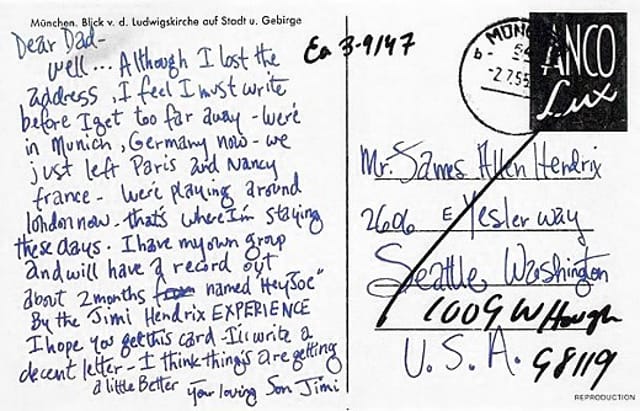 München. Blick v. d. Ludwigskirche auf Stadt u. Gebirge
Dear Dad-
well... Although I lost the
address, I feel I must write
before I get too far away - We're
in Munich, Germany now - we
just left Paris and Nancy
france - We're playing around
london now. that's where I'm staying
these days. I have my own group
and will have a record out
about 2 months named "Hey Joe"
By the Jimi Hendrix EXPERIENCE
I hope you get this card - I'll write a
decent letter - I think things are getting
a little Better
Your loving Son Jimi
3-9/47
MÜN
b
-2.7.55
ANCO
Lux
Mr. James Allen Hendrix
2606 E Yesler way
Seattle, Washington
1009 W Hough
U.S.A. 98119
REPRODUCTION